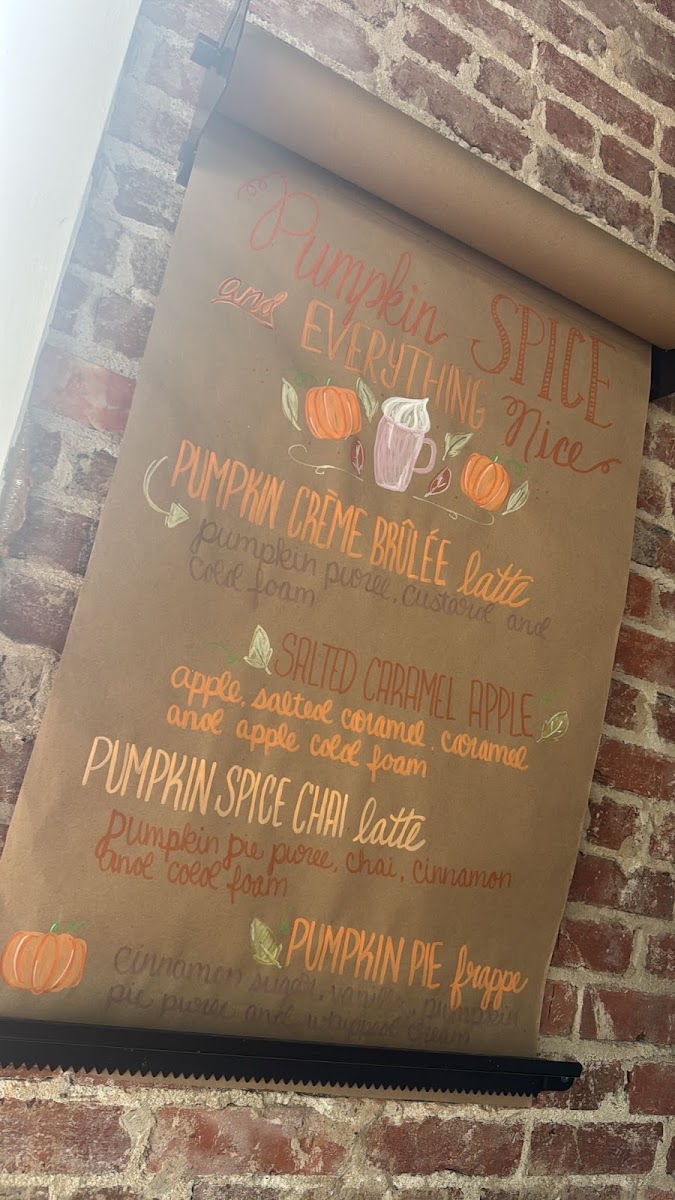 Pumpkin SPICE
and EVERYTHING Nice
PUMPKIN CRÈME BRÛLÉE latte
pumpkin puree, custard and
cold foam
SALTED CARAMEL APPLE
apple, salted caramel, caramel
and apple cold foam
PUMPKIN SPICE CHAI latte
pumpkin pie puree, chai, cinnamon
and cold foam
PUMPKIN PIE frappe
cinnamon sugar, vanilla, pumpkin
pie puree and whipped cream